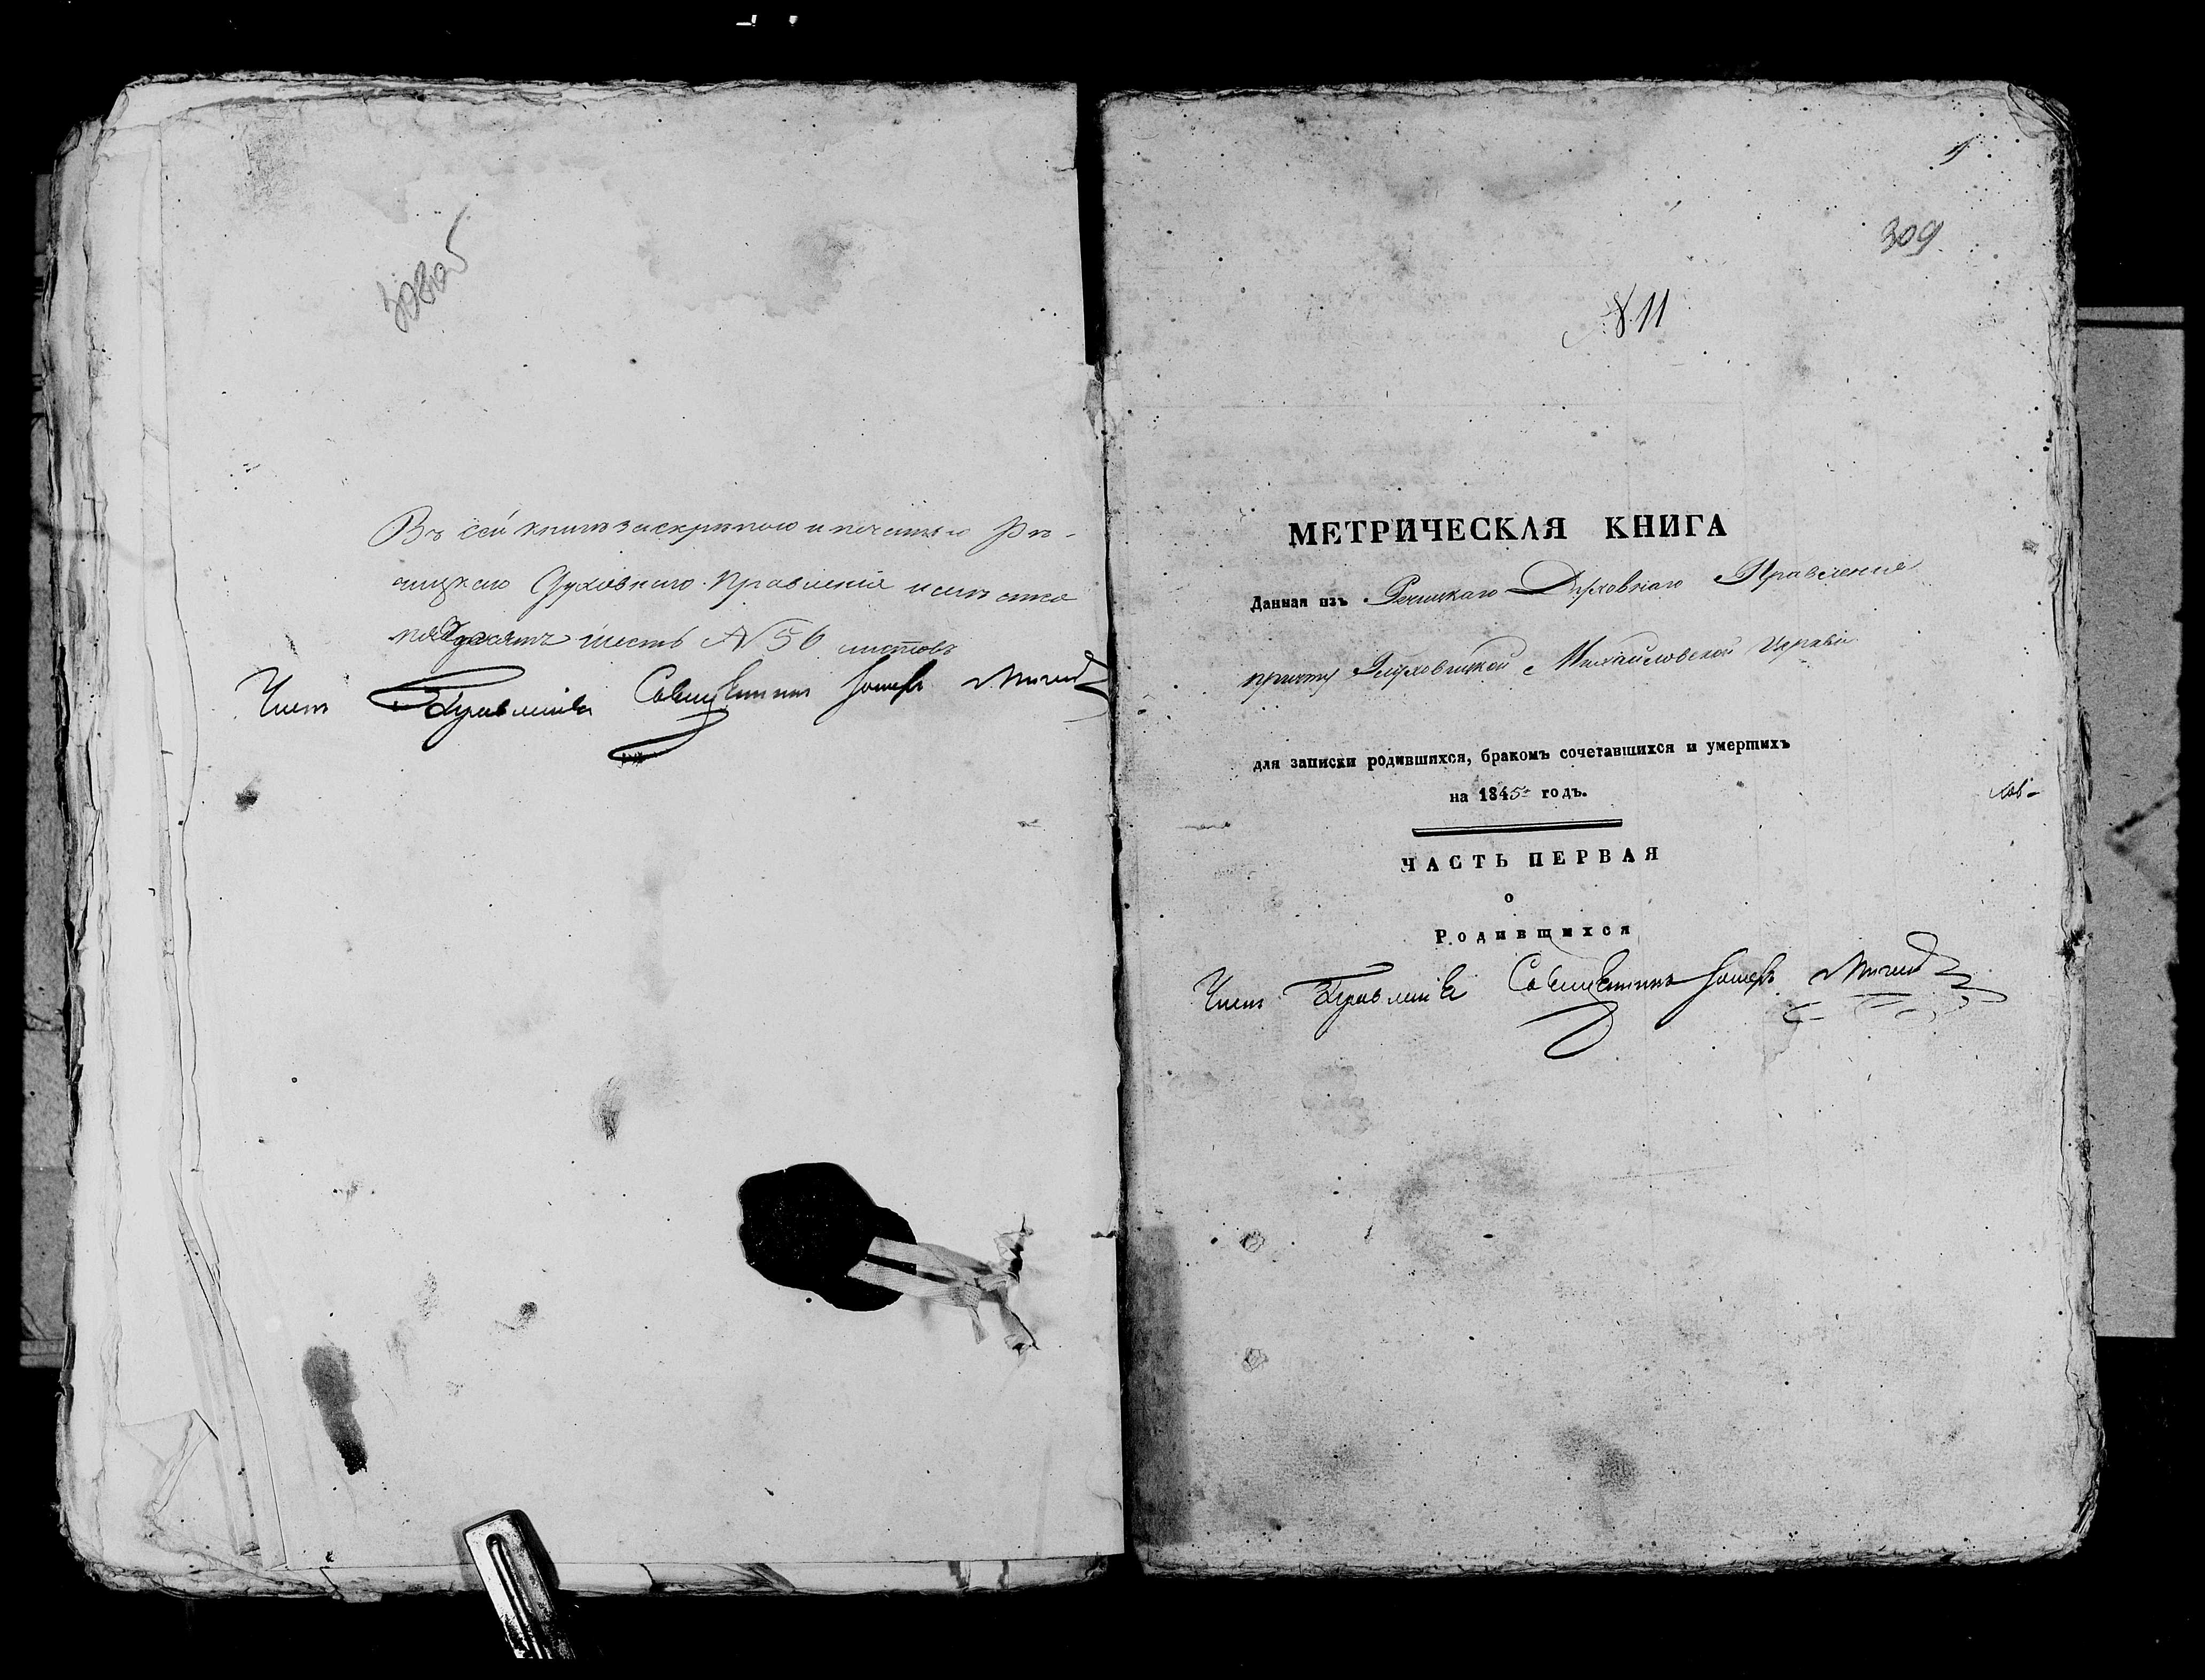 Въ сей книгѣ за скрѣпою и печатью Рѣ-
чицкаго Духовнаго Правленія
пядесятъ шесть N 56 листовъ
Членъ Правленія Священникъ
309
№ 11
МЕТРИЧЕСКАЯ КНИГА
Данная изъ Речицкаго Духовнаго Правленія
причту Глуховицкой Михайловской Церкви
для записки родившихся, бракомъ сочетавшихся и умершихъ
на 1845 годъ.
ЧАСТЬ ПЕРВАЯ
о
Родившихся
Членъ Правленія Священникъ